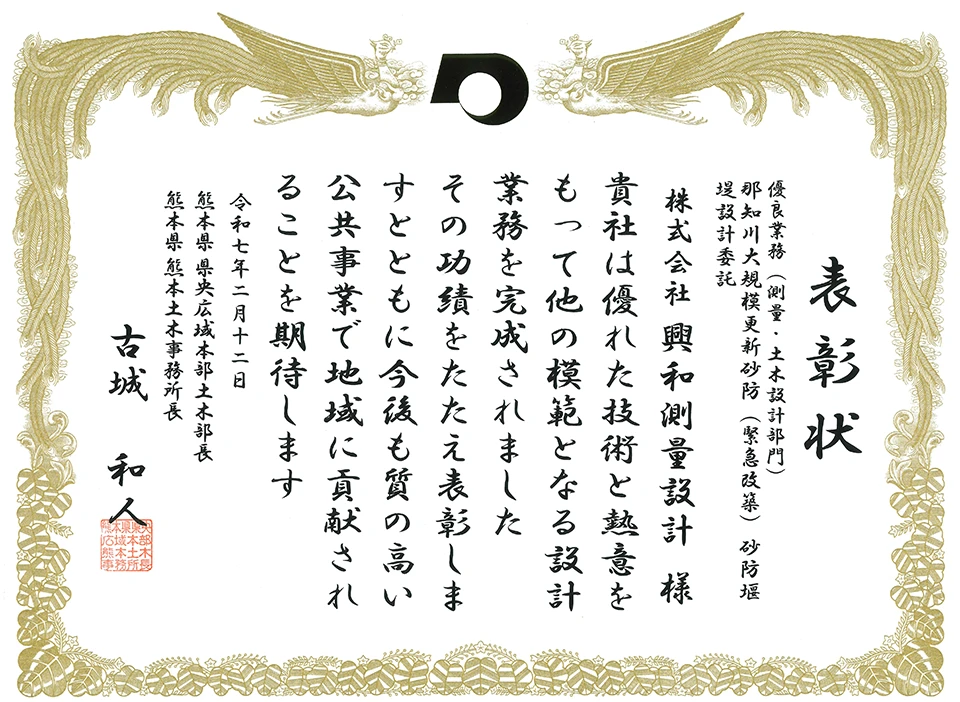 表彰状
優良業務（測量・土木設計部門）
那知川大規模更新砂防（緊急改築）砂防堰
堤設計委託
株式会社 興和測量設計 様
貴社は優れた技術と熱意を
もって他の模範となる設計
業務を完成されました
その功績をたたえ表彰しま
すとともに今後も質の高い
公共事業で地域に貢献され
ることを期待します
令和七年二月十二日
熊本県 県央広域本部土木部長
熊本県 熊本土木事務所長
古城 和人